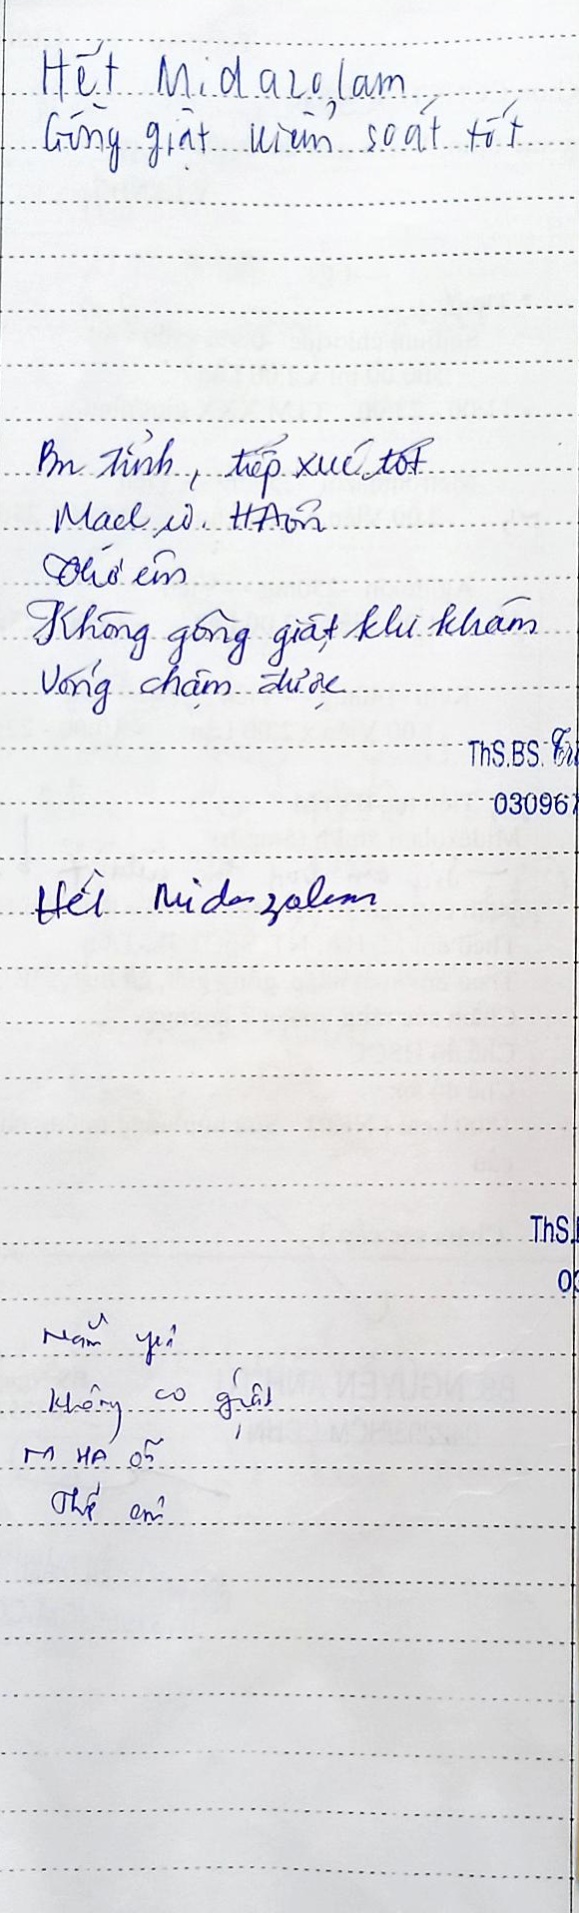 Hết Midazolam
Gồng giật kiểm soát tốt
Bn tỉnh, tiếp xúc tốt
HA ổn
Thở êm
Không gồng giật khi khám
Uống chậm được
ThS.BS.
030967
Hết Midazolam
ThS.
Nằm yên
Không co giật
M HA ổn
Thở êm